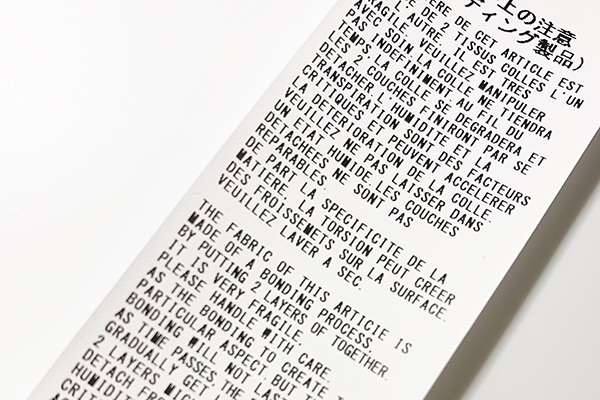 上の注意
ディング製品)
ERE DE CET ARTICLE EST
E DE 2 TISSUS COLLES L'UN
L'AUTRE. IL EST TRES
FRAGILE. VEUILLEZ MANIPULER
AVEC SOIN. LA COLLE NE TIENDRA
PAS INDEFINIMENT AU FIL DU
TEMPS. LA COLLE SE DEGRADERA ET
LES 2 COUCHES FINIRONT PAR SE
DETACHER. L'HUMIDITE ET LA
TRANSPIRATION SONT DES FACTEURS
CRITIQUES ET PEUVENT ACCELERER
UN DETERIORATION DE LA COLLE.
VEUILLEZ NE PAS LAISSER DANS
UN ETAT HUMIDE. LES COUCHES
DETACHEES NE SONT PAS
REPARABLES.
DE PART LA SPECIFICITE DE LA
MATIERE, LA TORSION PEUT CREER
DES FROISSEMETS SUR LA SURFACE.
VEUILLEZ LAVER A SEC.
THE FABRIC OF THIS ARTICIE IS
MADE OF A BONDING PROCESS
BY PUTTING 2 LAYERS OF TOGETHER.
IT IS VERY FRAGILE.
PLEASE HANDLE WITH CARE.
AS THE BONDING TO CREATE
PARTICULAR ASPECT BUT
BONDING WILL NOT LAST
AS TIME PASSES, THE
GRADUALLY GET
2 LAYERS
DETACH
HUMIDI